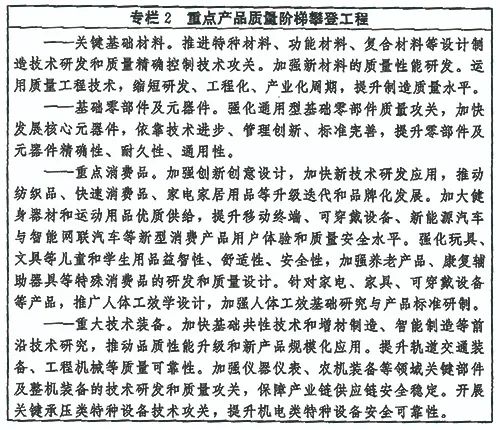 专栏 2 重点产品质量阶梯攀登工程
——关键基础材料。推进特种材料、功能材料、复合材料等设计制
造技术研发和质量精确控制技术攻关。加强新材料的质量性能研发。运
用质量工程技术，缩短研发、工程化、产业化周期，提升制造质量水平。
——基础零部件及元器件。强化通用型基础零部件质量攻关，加快
发展核心元器件，依靠技术进步、管理创新、标准完善，提升零部件及
元器件精确性、耐久性、通用性。
——重点消费品。加强创新创意设计，加快新技术研发应用，推动
纺织品、快速消费品、家电家居用品等升级迭代和品牌化发展。加大健
身器材和运动用品优质供给，提升移动终端、可穿戴设备、新能源汽车
与智能网联汽车等新型消费产品用户体验和质量安全水平。强化玩具、
文具等儿童和学生用品益智性、舒适性、安全性，加强养老产品、康复辅
助器具等特殊消费品的研发和质量设计。针对家电、家具、可穿戴设备
等产品，推广人体工效学设计，加强人体工效基础研究与产品标准研制。
——重大技术装备。加快基础共性技术和增材制造、智能制造等前
沿技术研究，推动品质性能升级和新产品规模化应用。提升轨道交通装
备、工程机械等质量可靠性。加强仪器仪表、农机装备等领域关键部件
及整机装备的技术研发和质量攻关，保障产业链供应链安全稳定。开展
关键承压类特种设备技术攻关，提升机电类特种设备安全可靠性。